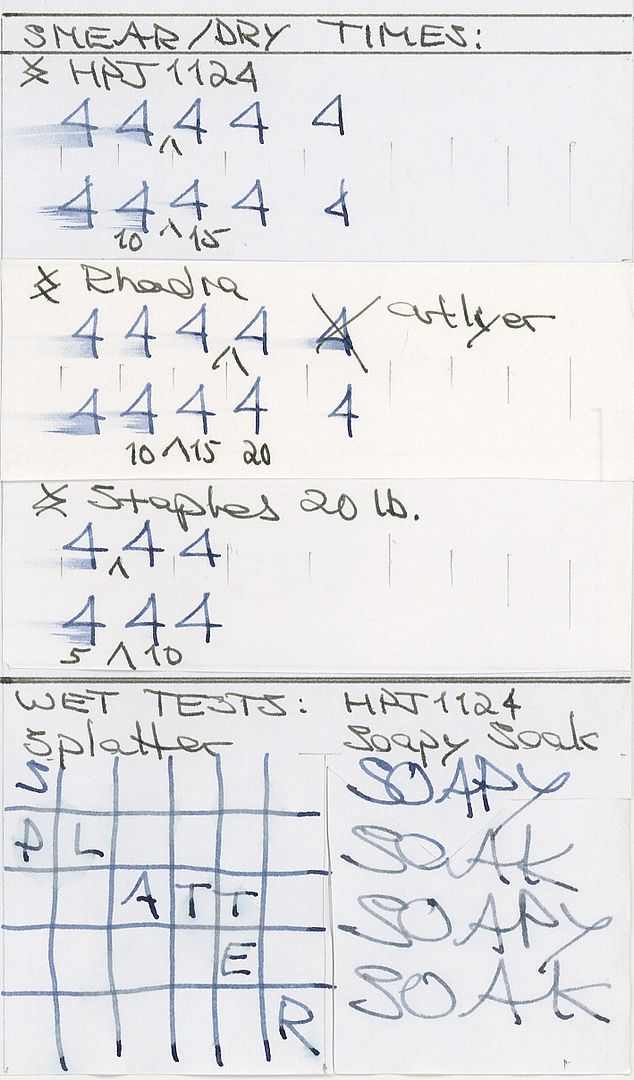 SMEAR/DRY TIMES:
HPJ1124
4 4 4 4 4
4 4 4 4 4
10 ^ 15
Rhodia
4 4 4 4 4 outlyer
4 4 4 4 4
10 ^ 15 20
Staples 20 lb.
4 4 4
4 4 4
5 ^ 10
WET TESTS: HPJ1124
Splatter Soapy Soak
S
P L
A T T
E
R
SOAPY
SOAK
SOAPY
SOAK